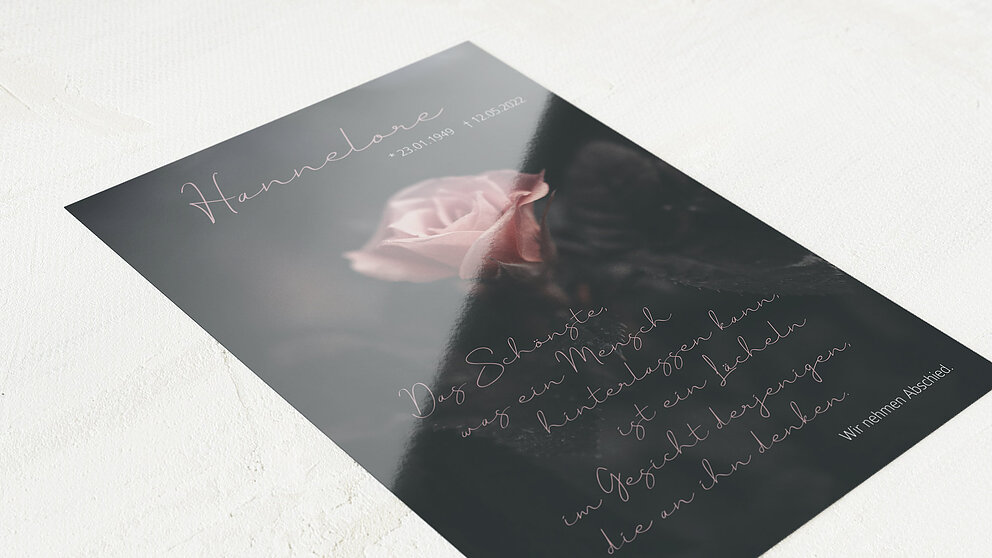 Hannelore
* 23.01.1949 † 12.05.2022
Das Schönste,
was ein Mensch
hinterlassen kann,
ist ein Lächeln
im Gesicht derjenigen,
die an ihn denken.
Wir nehmen Abschied.